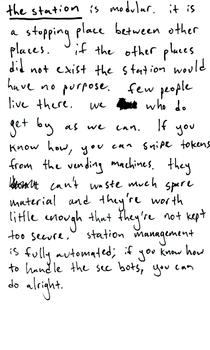 the station is modular. it is
a stopping place between other
places. if the other places
did not exist the station would
have no purpose. few people
live there. we who do
get by as we can. If you
know how, you can snipe tokens
from the vending machines. they
can't waste much spare
material and they're worth
little enough that they're not kept
too secure. station management
is fully automated; if you know how
to handle the sec bots, you can
do alright.